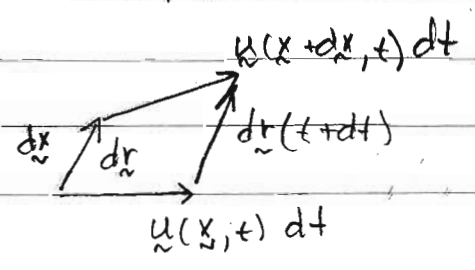 u(x+dx,t) dt
dx
dr
dr(t+dt)
u(x,t) dt